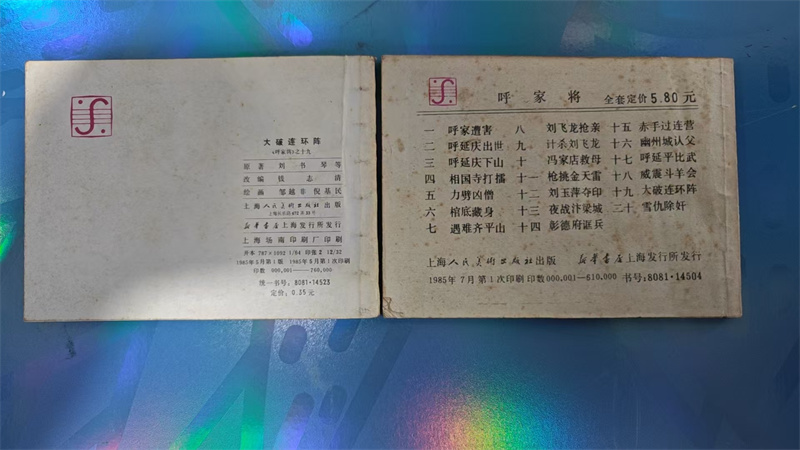 大破连环阵
《呼家将》之十九
原著 刘书琴等
改编 钱志清
绘画 邹越非 倪基民
上海人民美术出版社出版
上海长乐路672弄33号
新华书店上海发行所发行
上海场南印刷厂印刷
开本 787×1092 1/64 印张2 12/32
1985年5月第1版 1985年5月第1次印刷
印数 000,001——760,000
统一书号：8081·14523
定价：0.35元
呼家将 全套定价5.80元
一 呼家遭害 八 刘飞龙抢亲 十五 赤手过连营
二 呼延庆出世 九 计杀刘飞龙 十六 幽州城认父
三 呼延庆下山 十 冯家店救母 十七 呼延平比武
四 相国寺打擂 十一 枪挑金天雷 十八 威震斗羊会
五 力劈凶僧 十二 刘玉萍夺印 十九 大破连环阵
六 棺底藏身 十三 夜战汴梁城 二十 雪仇除奸
七 遇难齐平山 十四 彰德府诓兵
上海人民美术出版社出版 新华书店上海发行所发行
1985年7月第1次印刷 印数000,001—810,000 书号：8081·14504